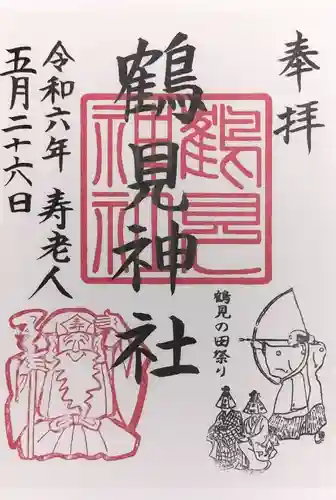 奉拝
鶴見神社
鶴見神社
鶴見の田祭り
寿老人
令和六年
五月二十六日